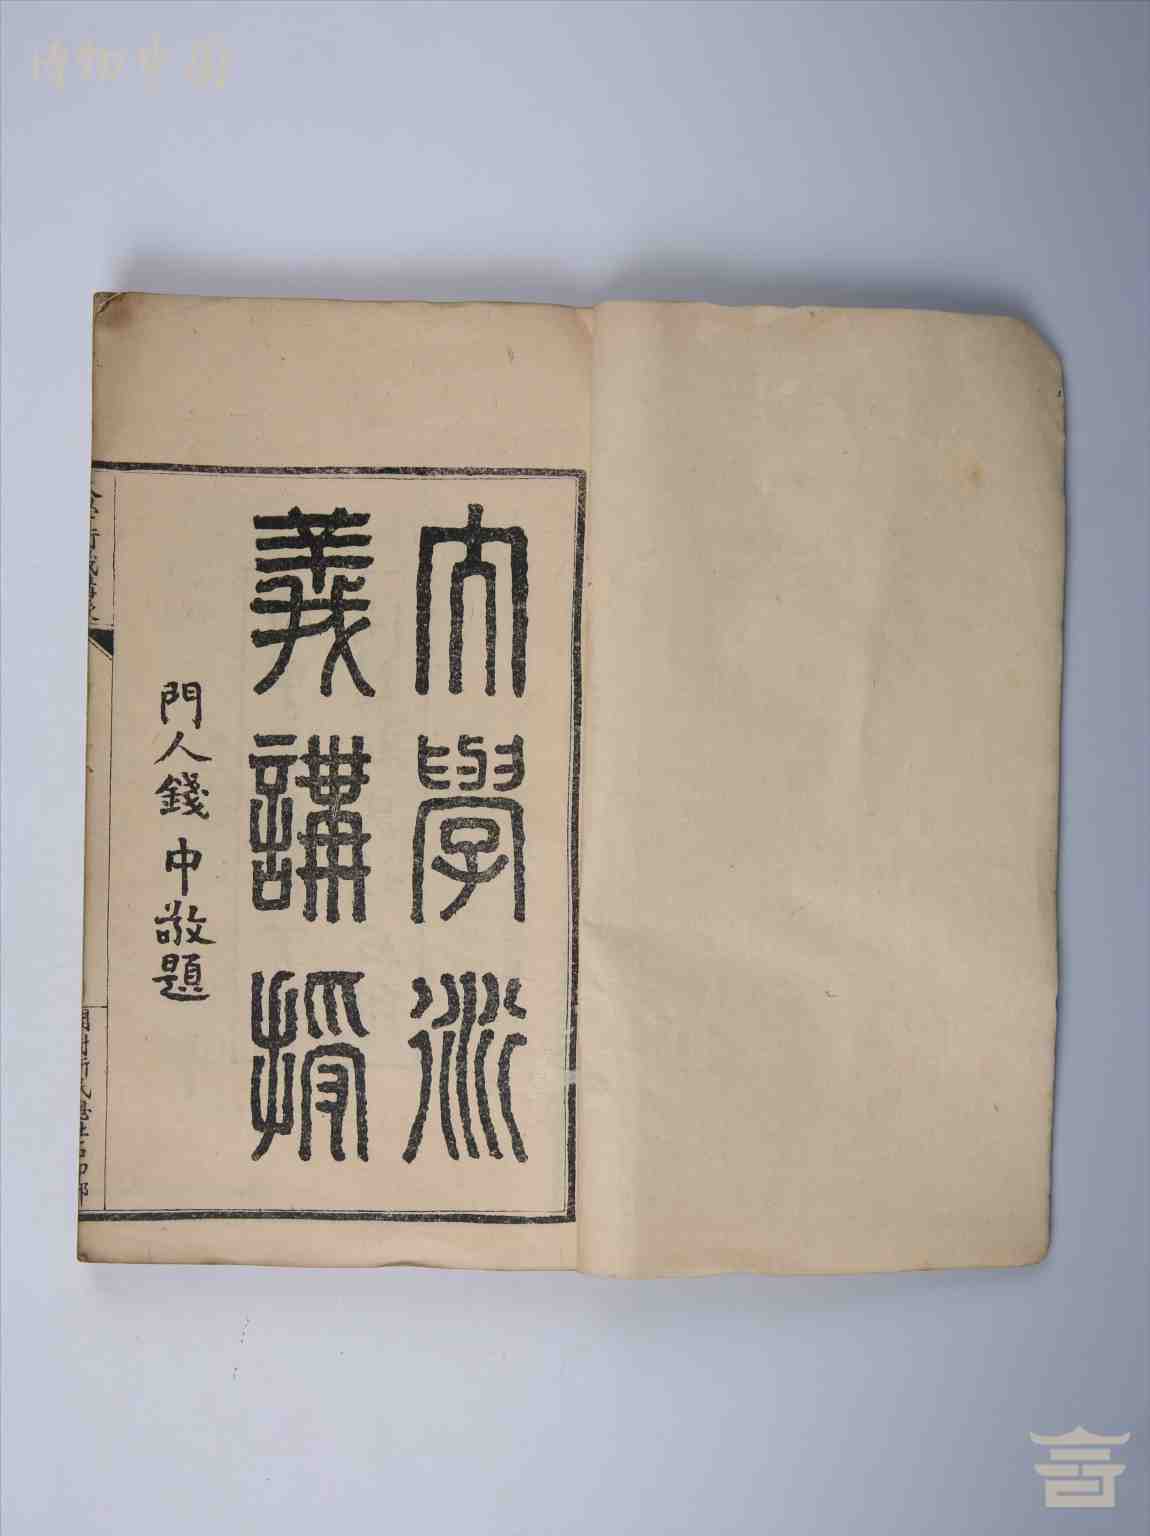 博物中国
大學衍
義講授
門人錢中敬題